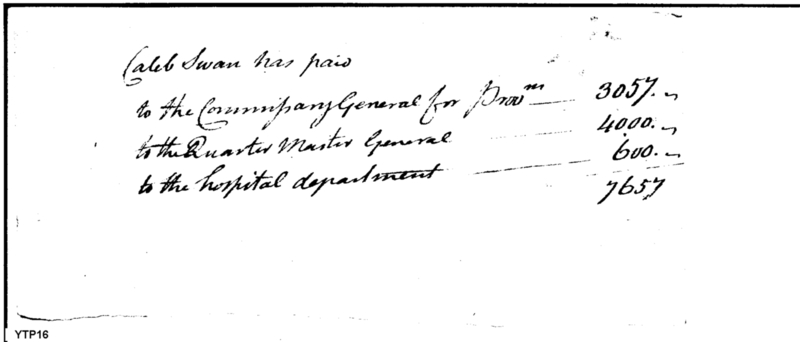 Caleb Swan has paid
to the Commissary General for Provns 3057.
to the Quarter Master General 4000.
to the hospital department 600.
7657
YTP16